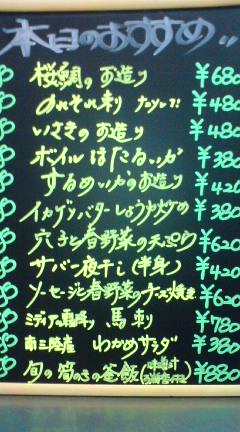 本日のおすすめ
桜鯛のお造り ¥680
のれそれ刺 ¥480
いさきのお造り ¥480
ボイルほたるいか ¥380
するめいかのお造り ¥420
イカゲソバターしょうゆ炒め ¥380
穴子と春野菜の天ぷら ¥620
サバ一夜干し(半身) ¥420
ソーセージと春野菜のチーズ焼き ¥620
ミディアム霜降り 馬刺 ¥780
南三陸産 わかめサラダ ¥380
旬の筍のき釜飯 ¥880